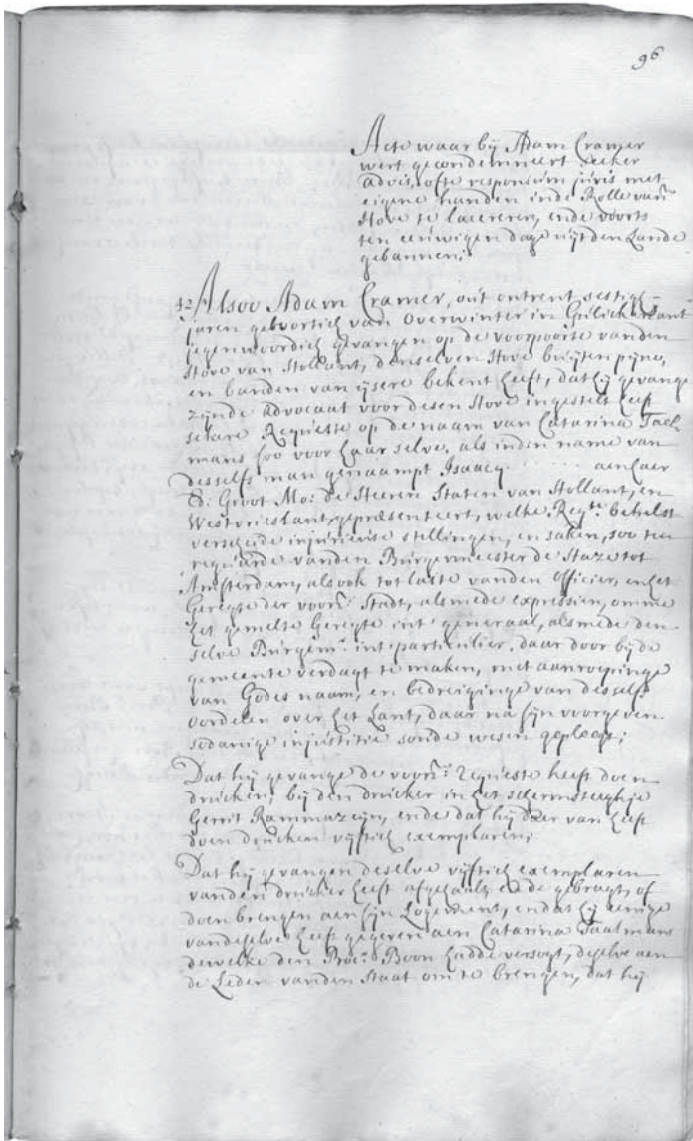 96
Acte waar bij Adam Cramer
wert gecondemneert seeker
advis, ofte responsum juris met
eigene handen inde Rolle van
Hove te lacereren, ende voorts
ten eeuwigen dage uijt den Lande
gebannen;
42 Alsoo Adam Cramer, out ontrent sestigh
jaren gebortich van Overwinter in Gulickerlant
jegenwoordich gevangen op de voorpoorte vanden
Hove van Hollant, denselven Hove buijten pijne,
en banden van ijsere bekent heeft, dat hij gevange
zijnde advocaat voor desen Hove ingestelt heeft
sekere Requeste op de naam van Catarina Tael
mans soo voor haar selve, als inden name van
desselfs man genaampt Isaacq ..... aen haer
Ed: Groot Mo: de Heeren Staten van Hollant, en
Westvrieslant gepresenteert, welke Reqte. behelst
verscheide injurieuse stellingen, en saken, soo ten
reguarde vanden Burgemeester de Haze tot
Amsterdam, als ook tot laste vanden officier, en het
Geregte der voorn: Stadt, als mede expressien, omme
het gemelte Geregte int generaal, als mede den
selve Burgemr. int particulier, daar door bij de
gemeente verdagt te maken, met aanroepinge
van Godes naam, en bedreiginge van desselfs
oordelen over het Lant, daar na sijn voorgeven
sodanige injustitie soude wesen gepleegt;
Dat hij gevange de voorn: requeste heeft doen
drucken, bij den drucker in het
Gerrit Rammazeijn, ende dat hij daer van heeft
doen drucken vijftich exemplaren;
Dat hij gevangen deselve vijftich exemplaren
vanden drucker heeft afgehaalt, ende gebragt, of
doen brengen aen sijn Logement, en dat hij eenige
vandeselve heeft gegeven aen Catarina Taalmans
dewelke den Procr. Boon hadde versogt, deselve aen
de Leden vanden Staat om te brengen, dat hij